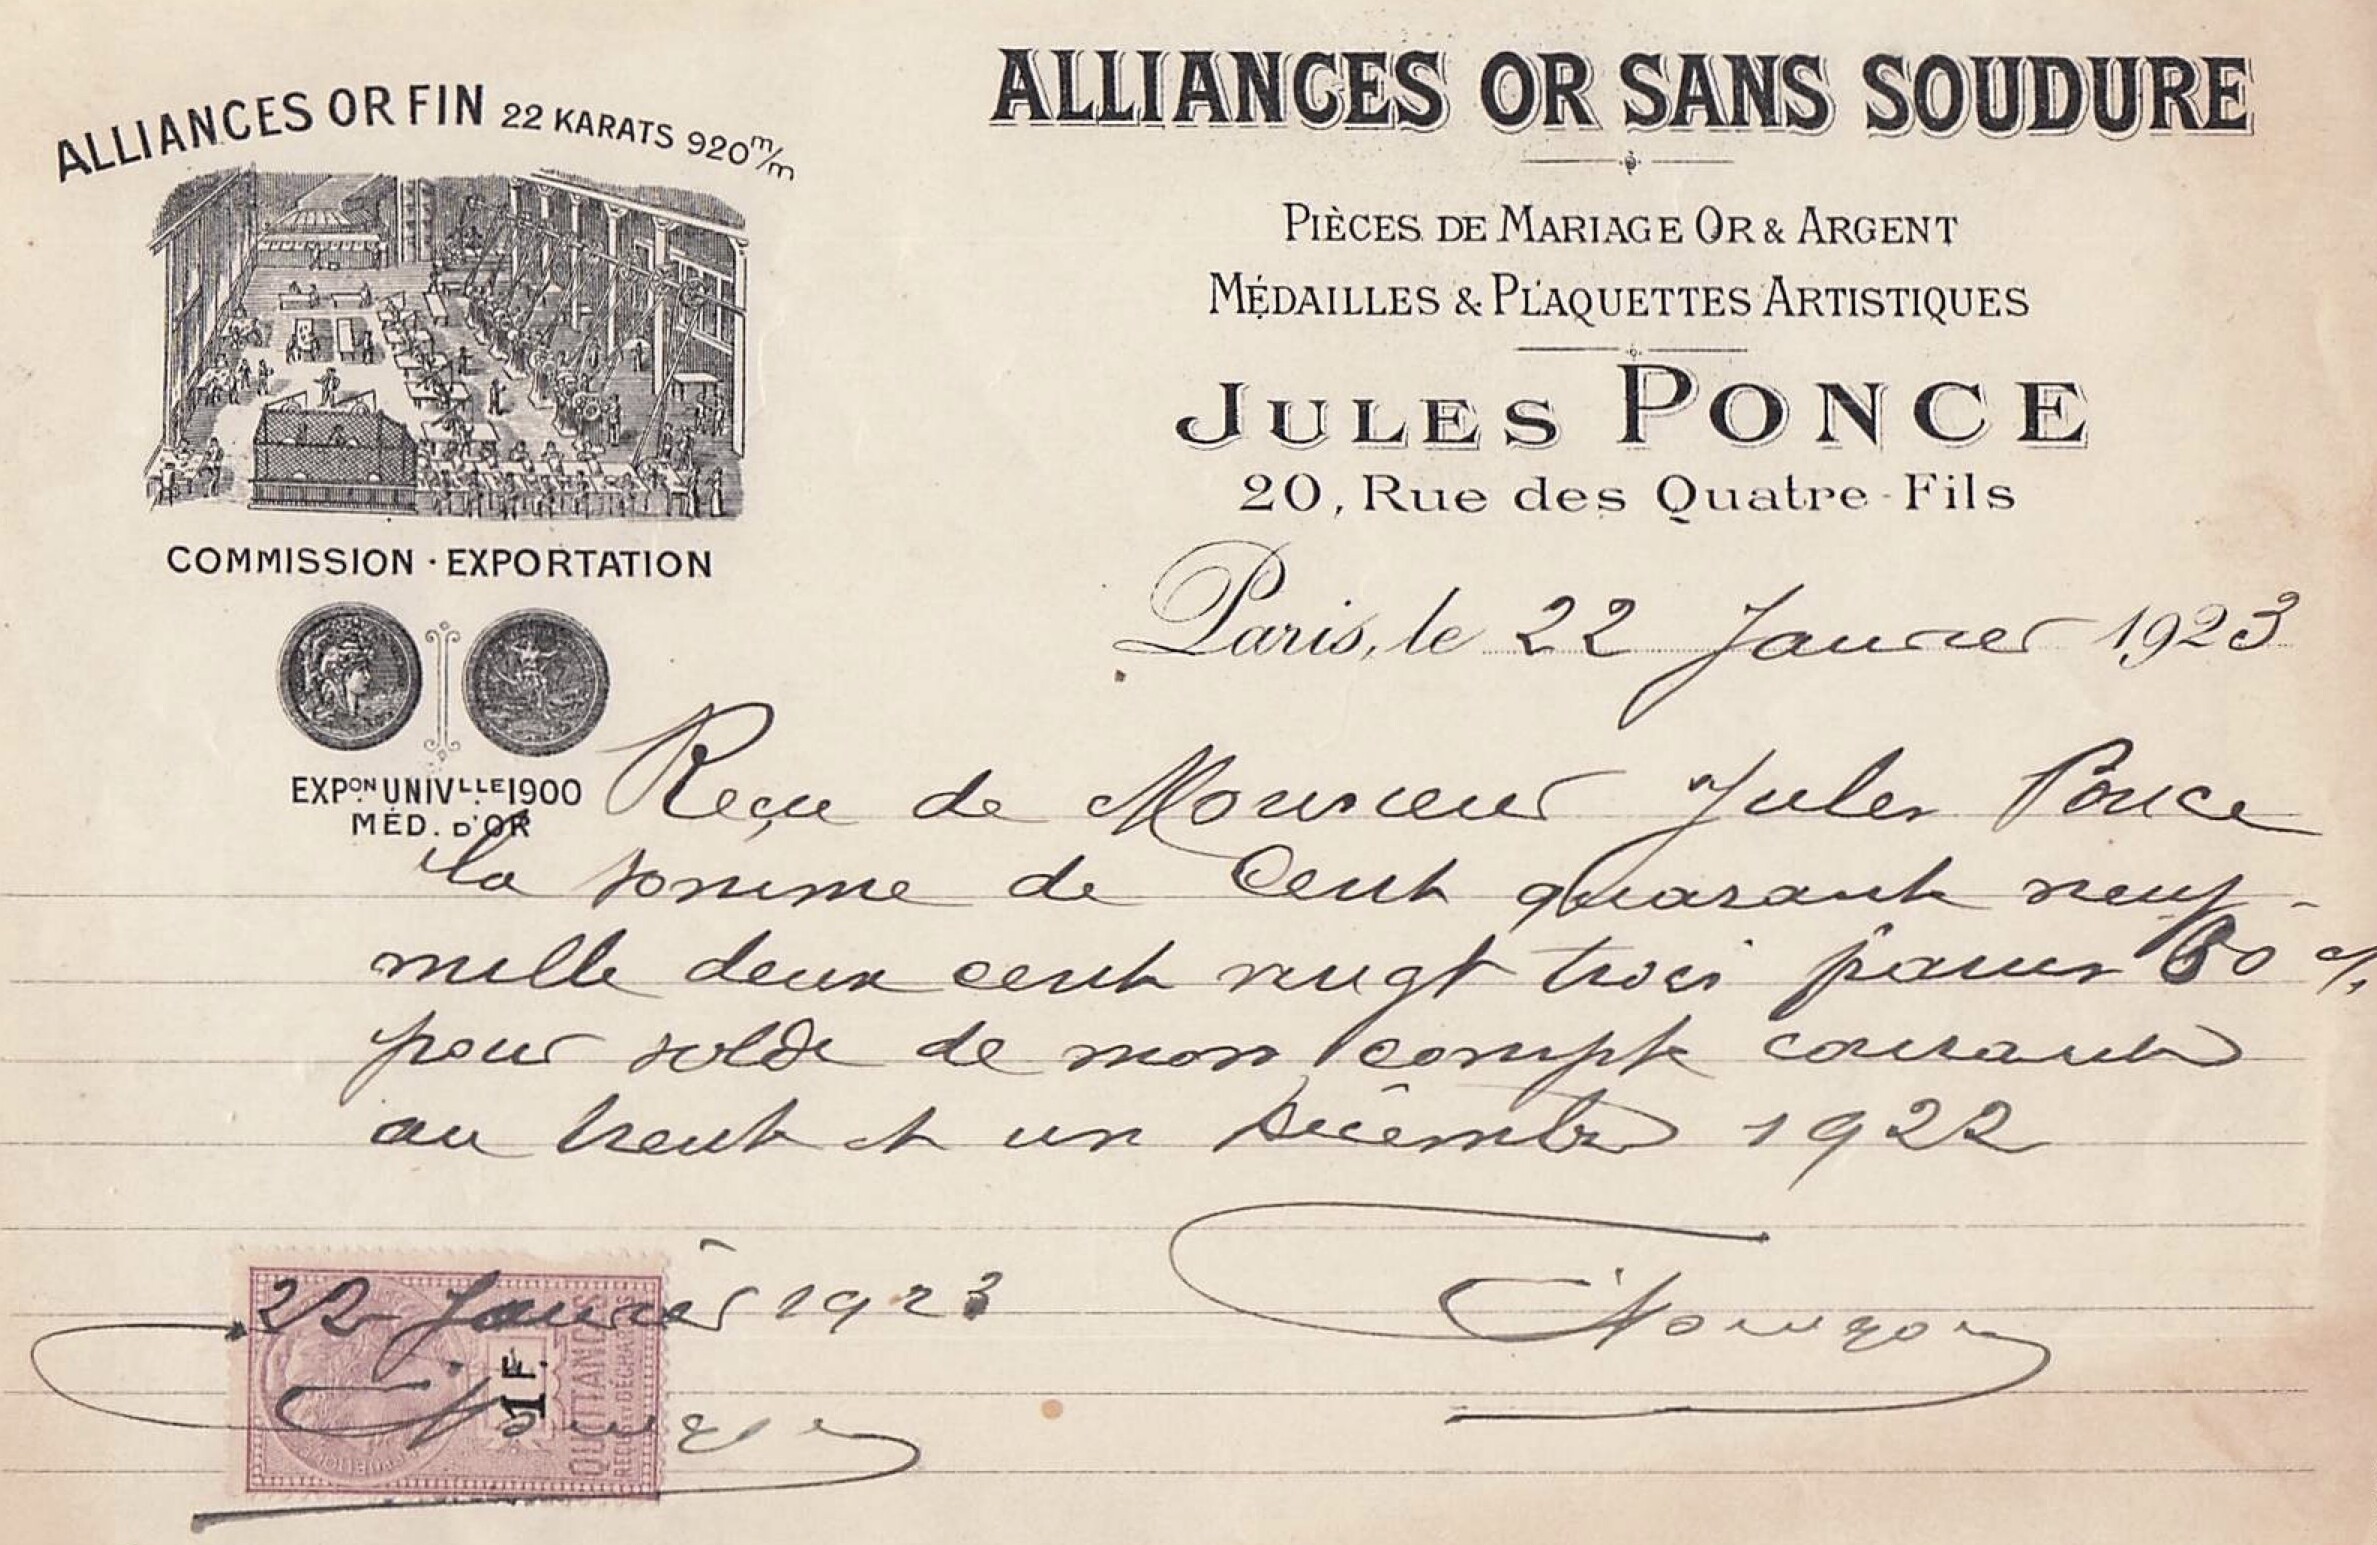 ALLIANCES OR FIN 22 KARATS 920 m/m
COMMISSION · EXPORTATION
EXPON UNIVLLE 1900
MÉD. D'OR
ALLIANCES OR SANS SOUDURE
PIÈCES DE MARIAGE OR & ARGENT
MÉDAILLES & PLAQUETTES ARTISTIQUES
JULES PONCE
20, Rue des Quatre-Fils
Paris, le 22 Janvier 1923
Reçu de Monsieur Jules Ponce
la somme de Cent quarante neuf
mille deux cent vingt trois francs 60 c/.
pour solde de mon compte courant
au trente et un Décembre 1922
22 Janvier 1923
1F.
QUITTANCES
REÇUS ET DÉCHARGES